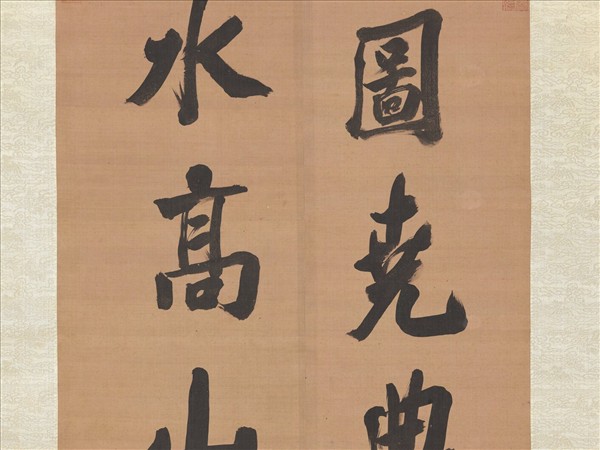 圖堯典
水高山